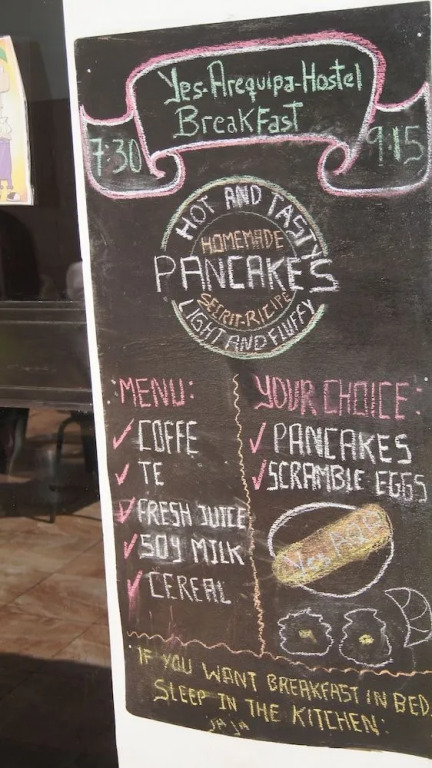 Yes-Arequipa-Hostel
BreakFast
7:30
9:15
HOT AND TASTY
HOMEMADE
PANCAKES
SECRIT-RICIPE
LIGHT AND FLUFFY
MENU:
✓ COFFE
✓ TE
✓ FRESH JUICE
✓ SOY MILK
✓ CEREAL
YOUR CHOICE:
✓ PANCAKES
✓ SCRAMBLE EGGS
IF YOU WANT BREAKFAST IN BED.
SLEEP IN THE KITCHEN:
JA JA